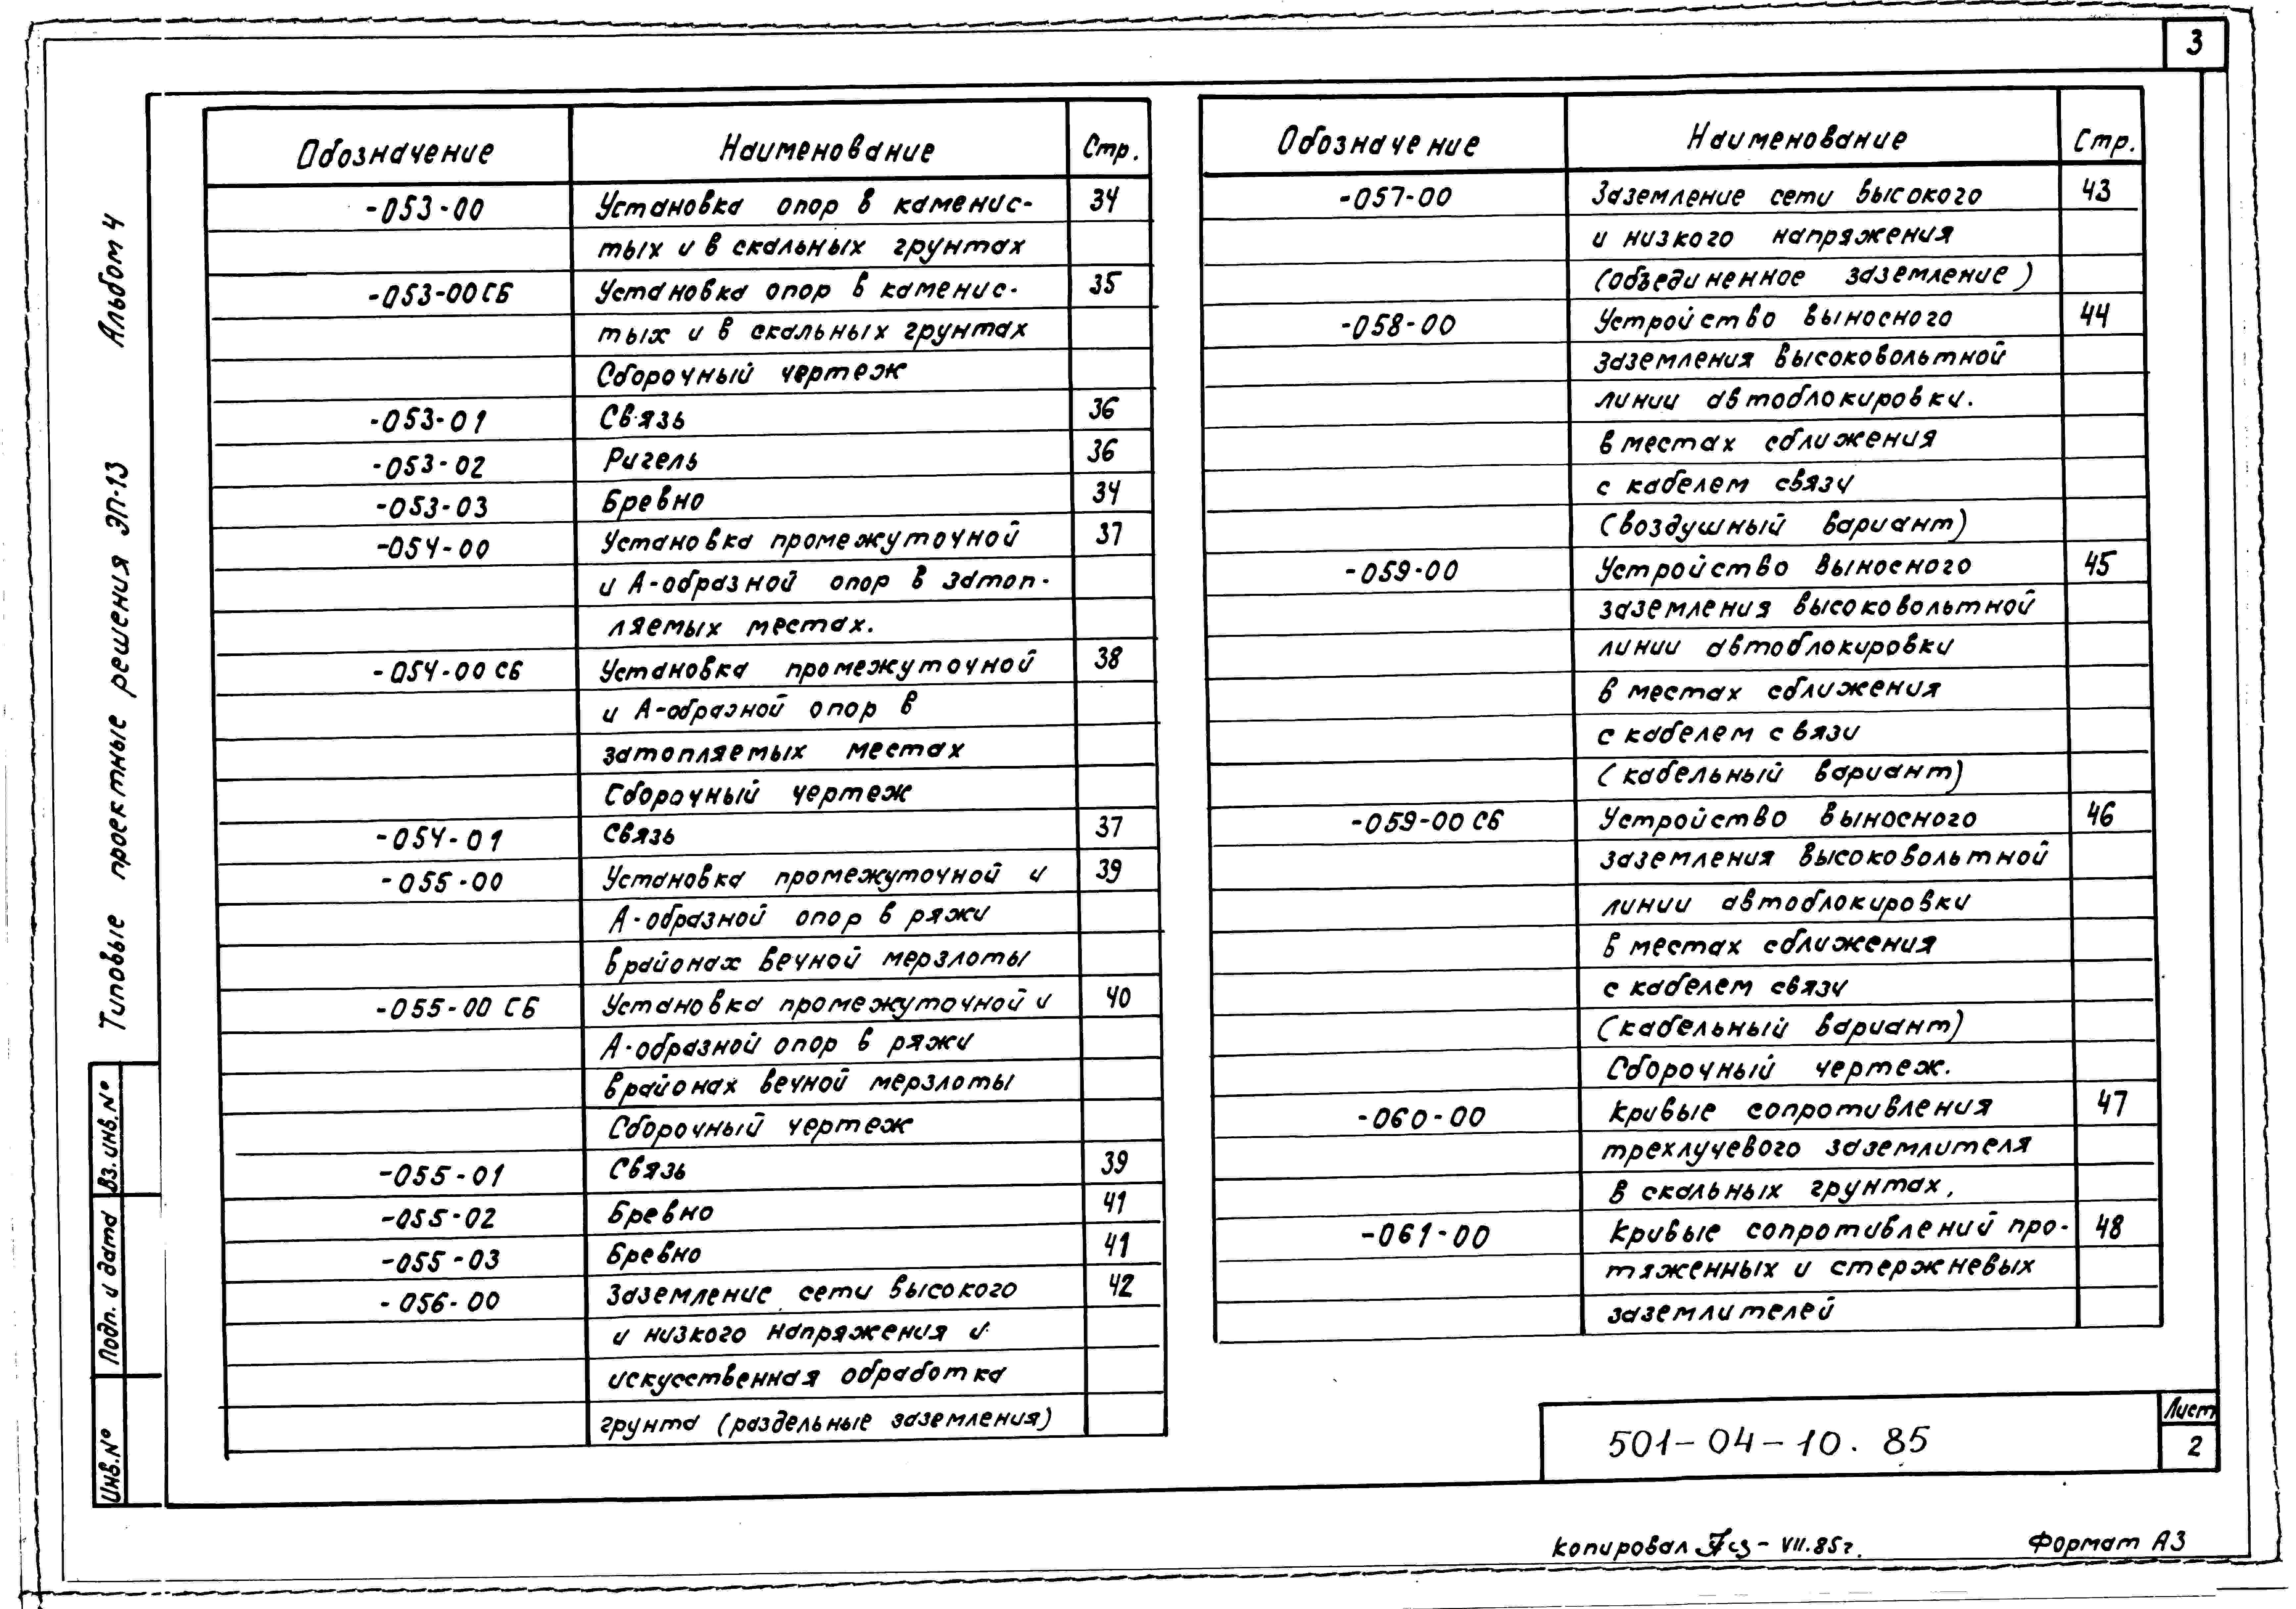 3
Альбом 4
Типовые проектные решения ЭП-13
Обозначение Наименование Стр.
-053-00 Установка опор в каменис- 34
тых и в скальных грунтах
-053-00 СБ Установка опор в каменис- 35
тых и в скальных грунтах
Сборочный чертеж
-053-01 Связь 36
-053-02 Ригель 36
-053-03 Бревно 34
-054-00 Установка промежуточной 37
и А-образной опор в затоп-
ляемых местах.
-054-00 СБ Установка промежуточной 38
и А-образной опор в
затопляемых местах
Сборочный чертеж
-054-01 Связь 37
-055-00 Установка промежуточной и 39
А-образной опор в ряжи
в районах вечной мерзлоты
-055-00 СБ Установка промежуточной и 40
А-образной опор в ряжи
в районах вечной мерзлоты
Сборочный чертеж
-055-01 Связь 39
-055-02 Бревно 41
-055-03 Бревно 41
-056-00 Заземление сети высокого 42
и низкого напряжения и
искусственная обработка
грунта (раздельные заземления)
Обозначение Наименование Стр.
-057-00 Заземление сети высокого 43
и низкого напряжения
(объединенное заземление)
-058-00 Устройство выносного 44
заземления высоковольтной
линии автоблокировки.
в местах сближения
с кабелем связи
(воздушный вариант)
-059-00 Устройство выносного 45
заземления высоковольтной
линии автоблокировки
в местах сближения
с кабелем связи
(кабельный вариант)
-059-00 СБ Устройство выносного 46
заземления высоковольтной
линии автоблокировки
в местах сближения
с кабелем связи
(кабельный вариант)
Сборочный чертеж.
-060-00 Кривые сопротивления 47
трехлучевого заземлителя
в скальных грунтах,
-061-00 Кривые сопротивлений про- 48
тяженных и стержневых
заземлителей
Вз. инв. №
Подп. и дата
Инв. №
501-04-10.85
Лист
2
Копировал VII.85г. Формат А3